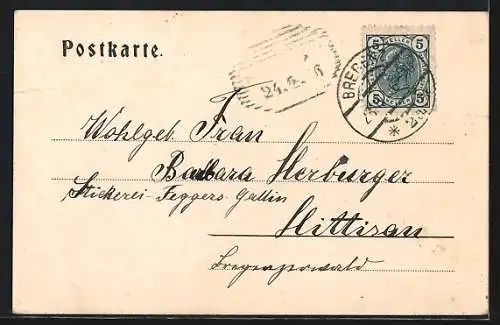 Postkarte.
24.2. 6
5 HELLER 5
BREGENZ
5 5
Wohlgeb. Frau
Barbara Herburger
Stickerei-Feggers Gattin
Hittisau
Bregenzerwald